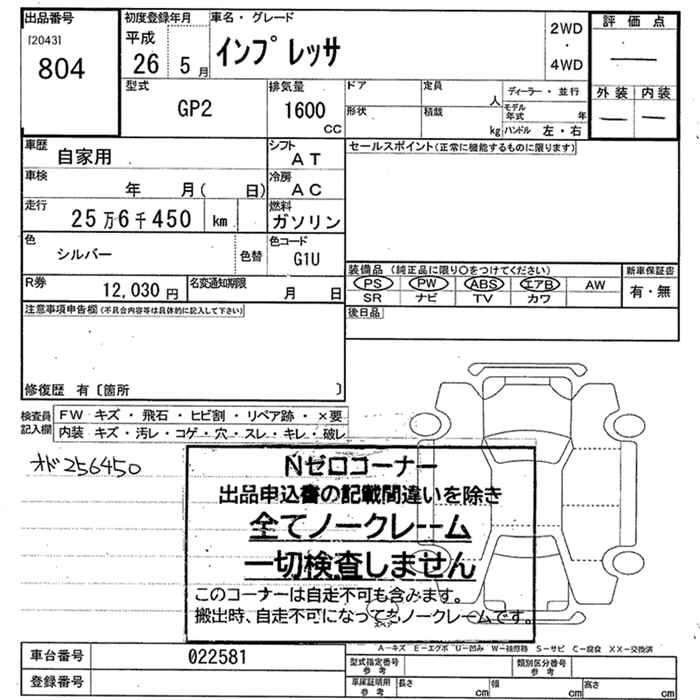 出品番号 初度登録年月 車名・グレード 2WD 評価点
[2043] 平成 ・
804 26 5月 インプレッサ 4WD
型式 排気量 ドア 定員 人 ディーラー・並行 外装 内装
GP2 1600 cc 形状 積載 kg モデル年式 年
ハンドル 左・右
車歴 自家用 シフト AT セールスポイント(正常に機能するものに限ります)
車検 年 月( 日) 冷房 AC
走行 25万6千450 km 燃料 ガソリン
色 シルバー 色替 色コード G1U
装備品 (純正品に限り○をつけてください) 新車保証書
R券 12,030円 名変通知期限 月 日 PS PW ABS エアB AW 有・無
SR ナビ TV カワ
注意事項申告欄(不具合内容等は具体的に記入して下さい) 後日品
修復歴 有〔箇所 〕
検査員記入欄 FW キズ・飛石・ヒビ割・リペア跡・×要
内装 キズ・汚レ・コゲ・穴・スレ・キレ・破レ
オド256450
Nゼロコーナー
出品申込書の記載間違いを除き
全てノークレーム
一切検査しません
このコーナーは自走不可も含みます。
搬出時、自走不可になってもノークレームです。
スペア
A-キズ E-エグボ U-凹み W-補修跡 S-サビ C-腐食 XX-交換済
車台番号 022581 型式指定番号 参考 類別区分番号 参考
登録番号 車庫証明用 参考 長さ cm 幅 cm 高さ cm